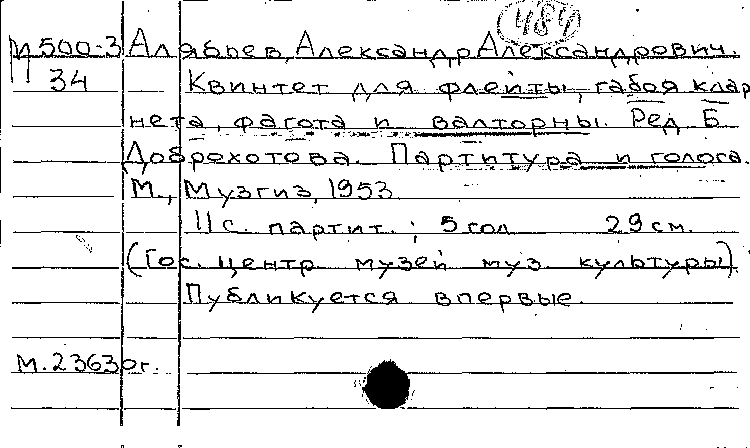 484
М500-3 Алябьев, Александр Александрович.
34 Квинтет для флейты, габоя клар
нета, фагота и валторны. Ред Б
Доброхотова. Партитура и голоса.
М., Музгиз, 1953
11 с. партит. ; 5 гол 29 см.
(Гос. центр музей муз. культуры)
Публикуется впервые.
М.23630г.